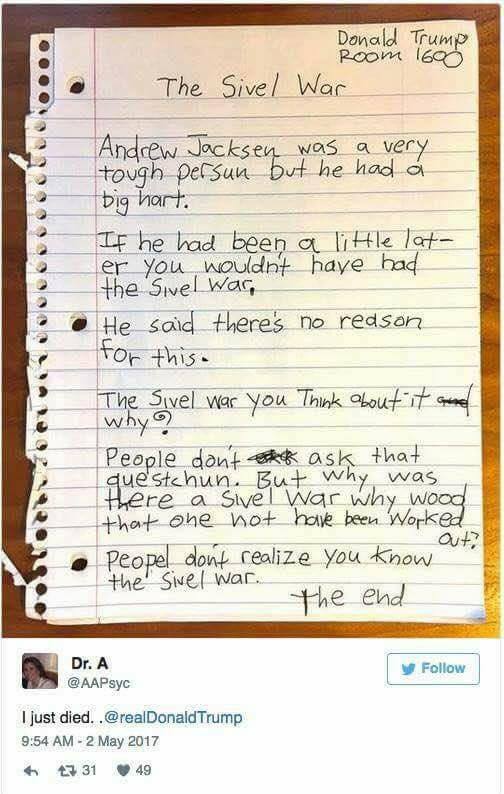 Donald Trump
Room 1600
The Sivel War
Andrew Jacksen was a very
tough persun but he had a
big hart.
If he had been a little lat-
er you wouldn't have had
the Sivel War,
He said there's no reason
for this.
The Sivel war you Think about it and
why?
People don't ask that
questchun. But why was
there a Sivel War why wood
that one not have been worked
out?
Peopel don't realize you know
the Sivel war.
the end
Dr. A
@AAPsyc
Follow
I just died. .@realDonaldTrump
9:54 AM - 2 May 2017
31 49